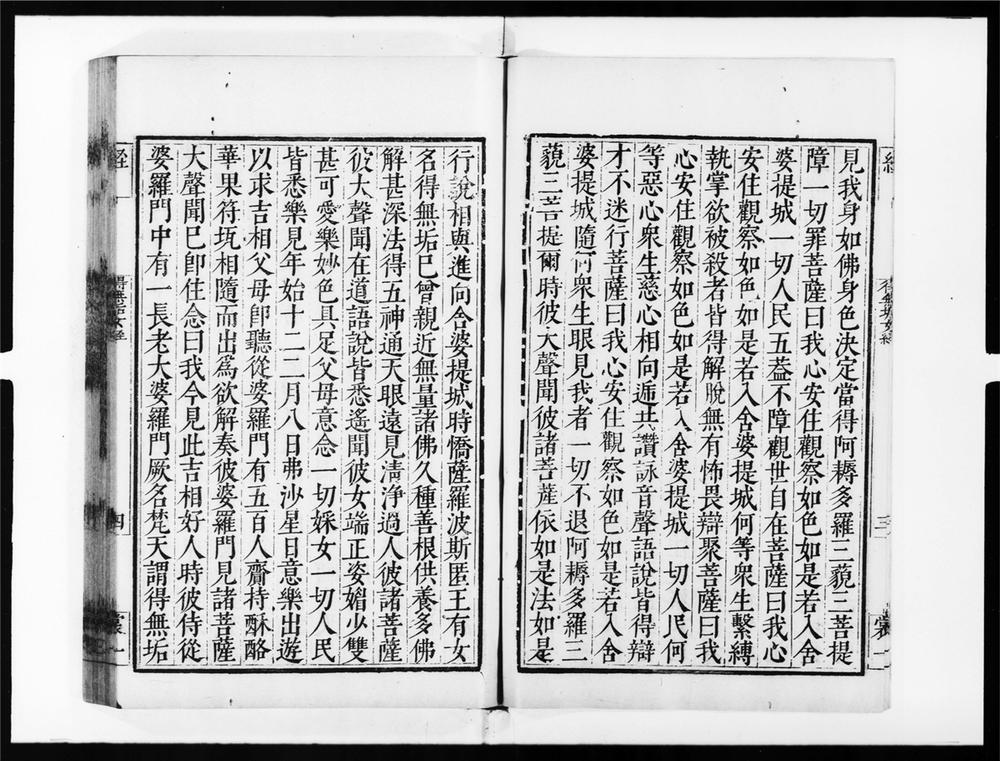 見我身如佛身色決定當得阿耨多羅三藐三菩提
障一切罪菩薩曰我心安住觀察如色如是若入舍
婆提城一切人民五蓋不障觀世自在菩薩曰我心
安住觀察如色如是若入舍婆提城何等衆生繫縛
執掌欲被殺者皆得解脫無有怖畏辯聚菩薩曰我
心安住觀察如色如是若入舍婆提城一切人民何
等惡心衆生慈心相向遞共讚詠音聲語說皆得辯
才不迷行菩薩曰我心安住觀察如色如是若入舍
婆提城隨何衆生眼見我者一切不退阿耨多羅三
藐三菩提爾時彼大聲聞彼諸菩薩依如是法如是
行說相與進向舍婆提城時憍薩羅波斯匿王有女
名得無垢已曾親近無量諸佛久種善根供養多佛
解甚深法得五神通天眼遠見清淨過人彼諸菩薩
彼大聲聞在道語說皆悉遙聞彼女端正姿媚少雙
甚可愛樂妙色具足父母意念一切婇女一切人民
皆悉樂見年始十二二月八日弗沙星日意樂出遊
以求吉相父母卽聽從婆羅門有五百人齎持酥酪
華果符瓨相隨而出爲欲解奏彼婆羅門見諸菩薩
大聲聞已卽住念曰我今見此吉相好人時彼侍從
婆羅門中有一長老大婆羅門厥名梵天謂得無垢
經
四